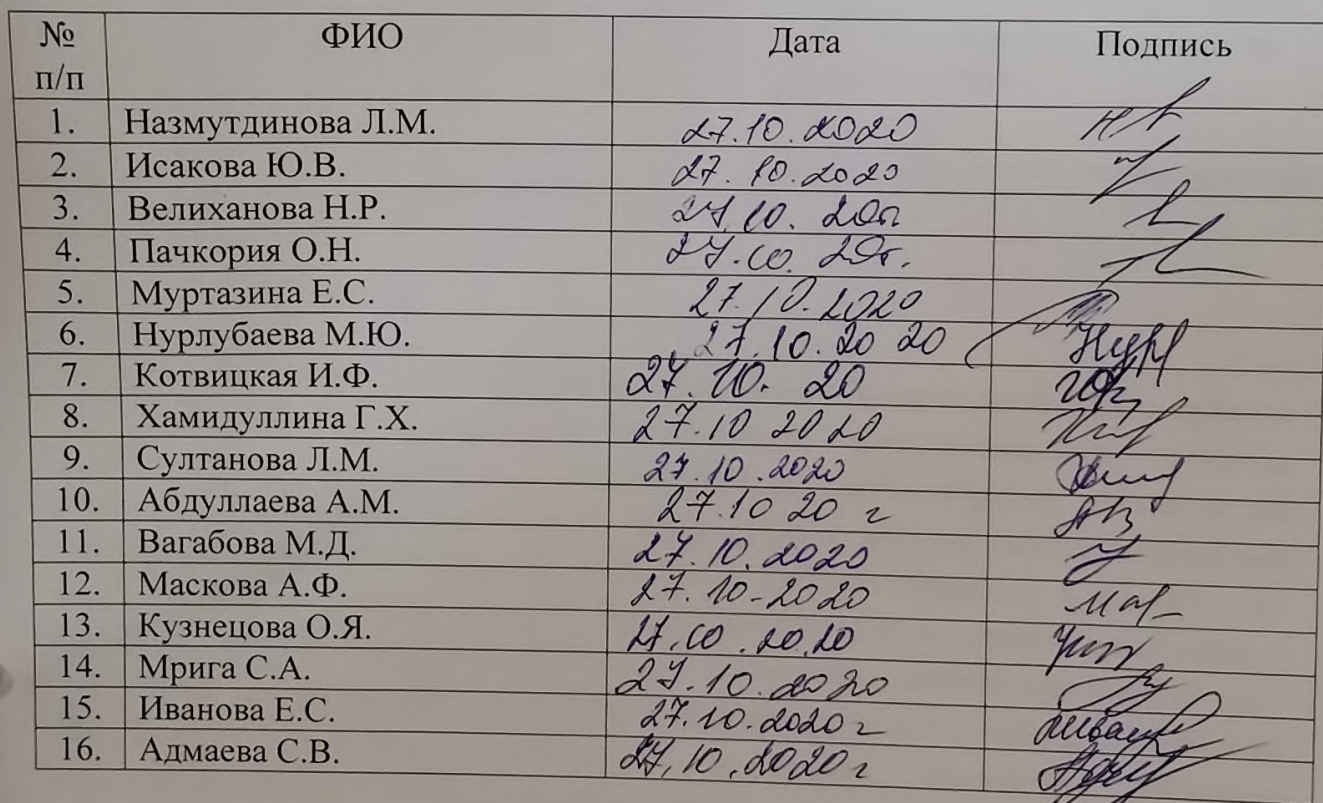 № п/п ФИО Дата Подпись
1. Назмутдинова Л.М. 27.10.2020
2. Исакова Ю.В. 27.10.2020
3. Велиханова Н.Р. 27.10.20г
4. Пачкория О.Н. 27.10.20г.
5. Муртазина Е.С. 27.10.2020
6. Нурлубаева М.Ю. 27.10.20 20
7. Котвицкая И.Ф. 27.10. 20
8. Хамидуллина Г.Х. 27.10 2020
9. Султанова Л.М. 27.10.2020
10. Абдуллаева А.М. 27.10 20 г
11. Вагабова М.Д. 27.10.2020
12. Маскова А.Ф. 27.10-2020
13. Кузнецова О.Я. 27.10.20.20
14. Мрига С.А. 27.10.2020
15. Иванова Е.С. 27.10.2020г
16. Адмаева С.В. 27.10.2020г